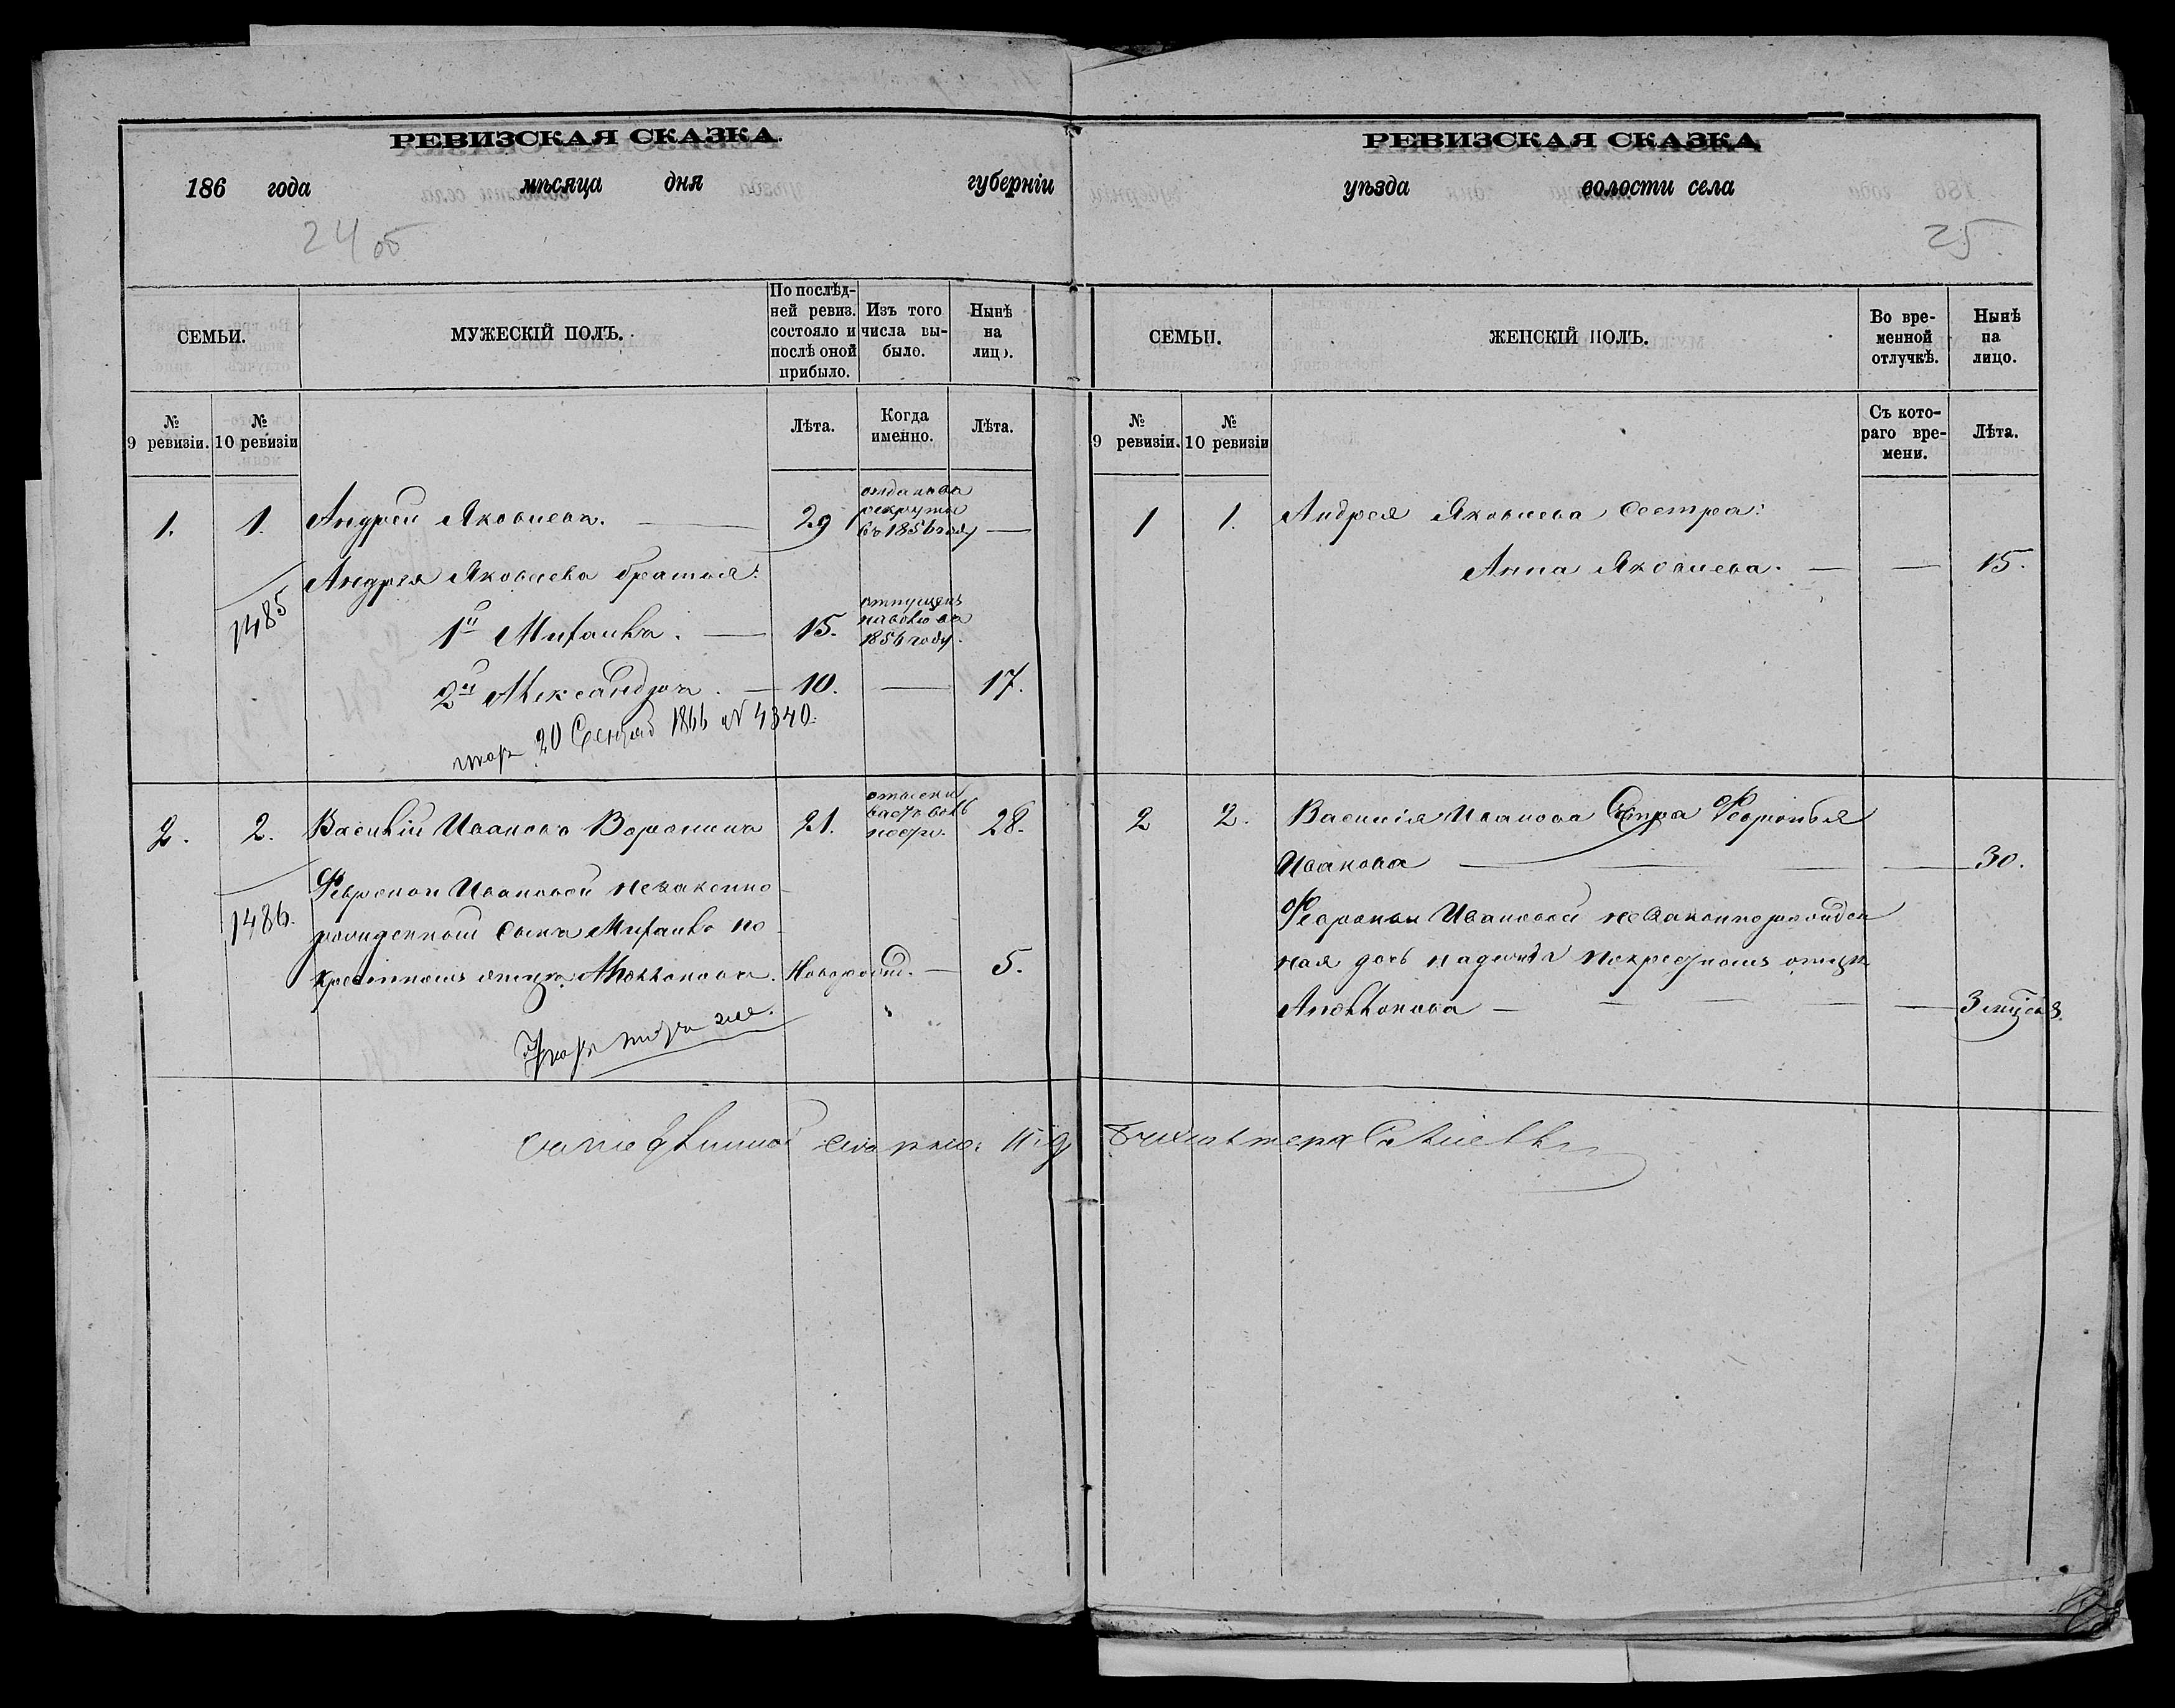 РЕВИЗСКАЯ СКАЗКА.
186 года мѣсяца дня губерніи
24 об
СЕМЬИ.
МУЖЕСКІЙ ПОЛЪ.
По послѣд-
ней ревиз.
состояло и
послѣ оной
прибыло.
Изъ того
числа вы-
было.
Нынѣ
на
лицо.
№
9 ревизіи.
№
10 ревизіи
Лѣта.
Когда
именно.
Лѣта.
1. 1. Андрей Яковлевъ. — 29 отданъ въ
рекруты
въ 1856 году —
Андрея Яковлева братья:
1485
1й Михаилъ. — 15. отпущенъ
на волю въ
1856 году.
2й Александръ. — 10. — 17.
20 1866 № 4340.
2. 2. Василій Ивановъ Воронинъ 21. 28.
Февроньи Ивановой незаконно-
1486.
рожденный сынъ Михаилъ по
крестному отцу Новорожд. — 5.
РЕВИЗСКАЯ СКАЗКА
уѣзда волости села
25
СЕМЬИ.
ЖЕНСКІЙ ПОЛЪ.
Во вре-
менной
отлучкѣ.
Нынѣ
на
лицо.
№
9 ревизіи.
№
10 ревизіи
Съ кото-
раго вре-
мени.
Лѣта.
1 1. Андрея Яковлева сестра:
Анна Яковлева. — — 15.
2 2. Василія Иванова сестра Февронья
Иванова — — 30.
Февроньи Ивановой незаконнорожден
ная дочь Надежда по крестному отцу
— — 3